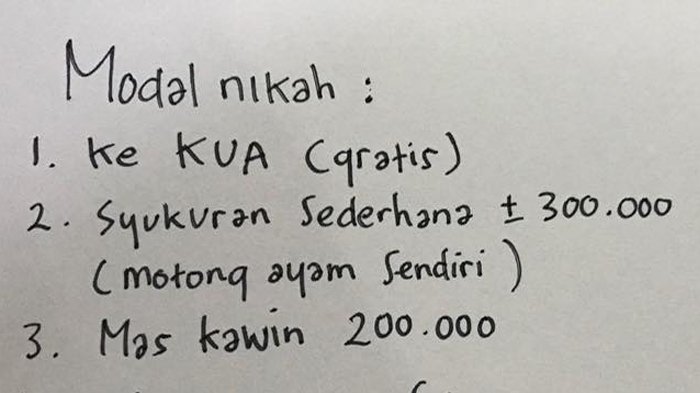 Modal nikah :
1. Ke KUA (gratis)
2. Syukuran Sederhana ± 300.000
(motong ayam Sendiri)
3. Mas kawin 200.000